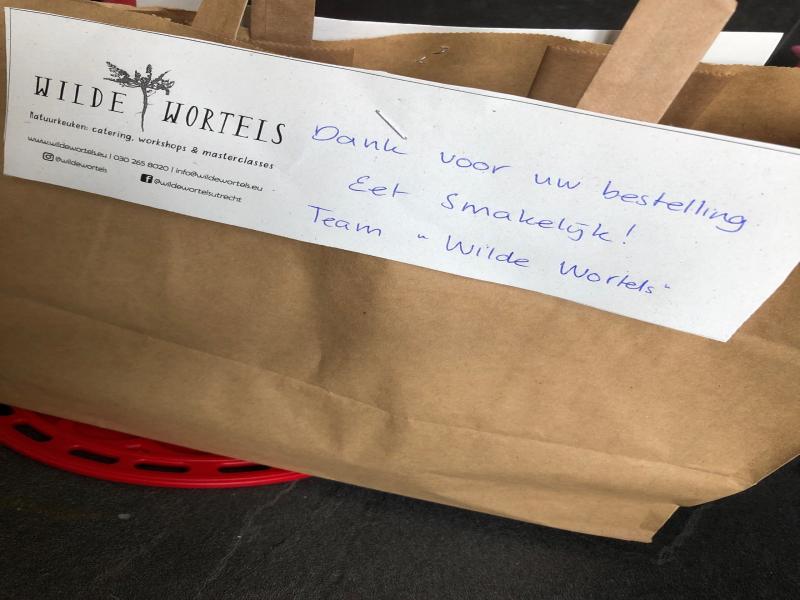 WILDE WORTELS
Natuurkeuken: catering, workshops & masterclasses
www.wildewortels.eu | 030 265 8020 | info@wildewortels.eu
@wildewortels @wildewortelsutrecht
Dank voor uw bestelling
Eet Smakelijk!
Team "Wilde Wortels"